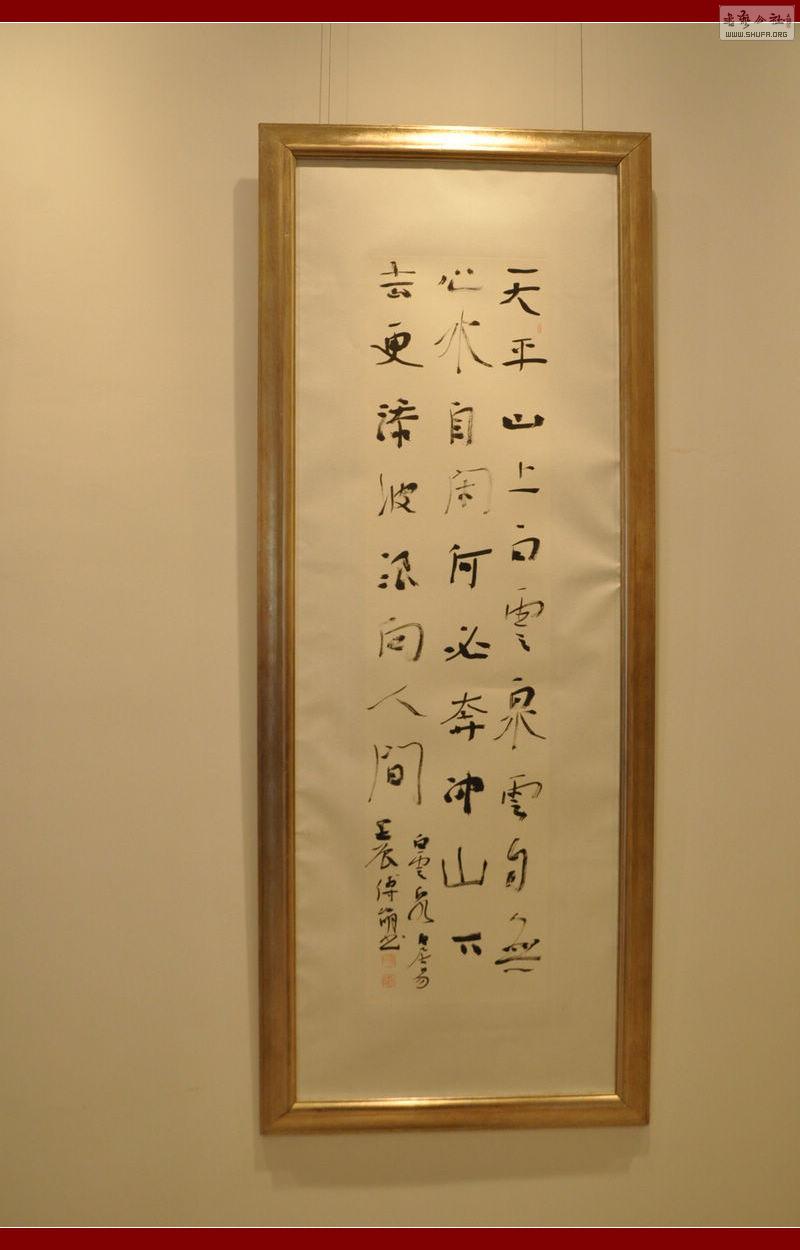 天平山上白雲泉雲自無
心水自閑何必奔冲山下
去更添波浪向人間
白雲泉白居易
壬辰傅萌书
书艺公社
WWW.SHUFA.ORG